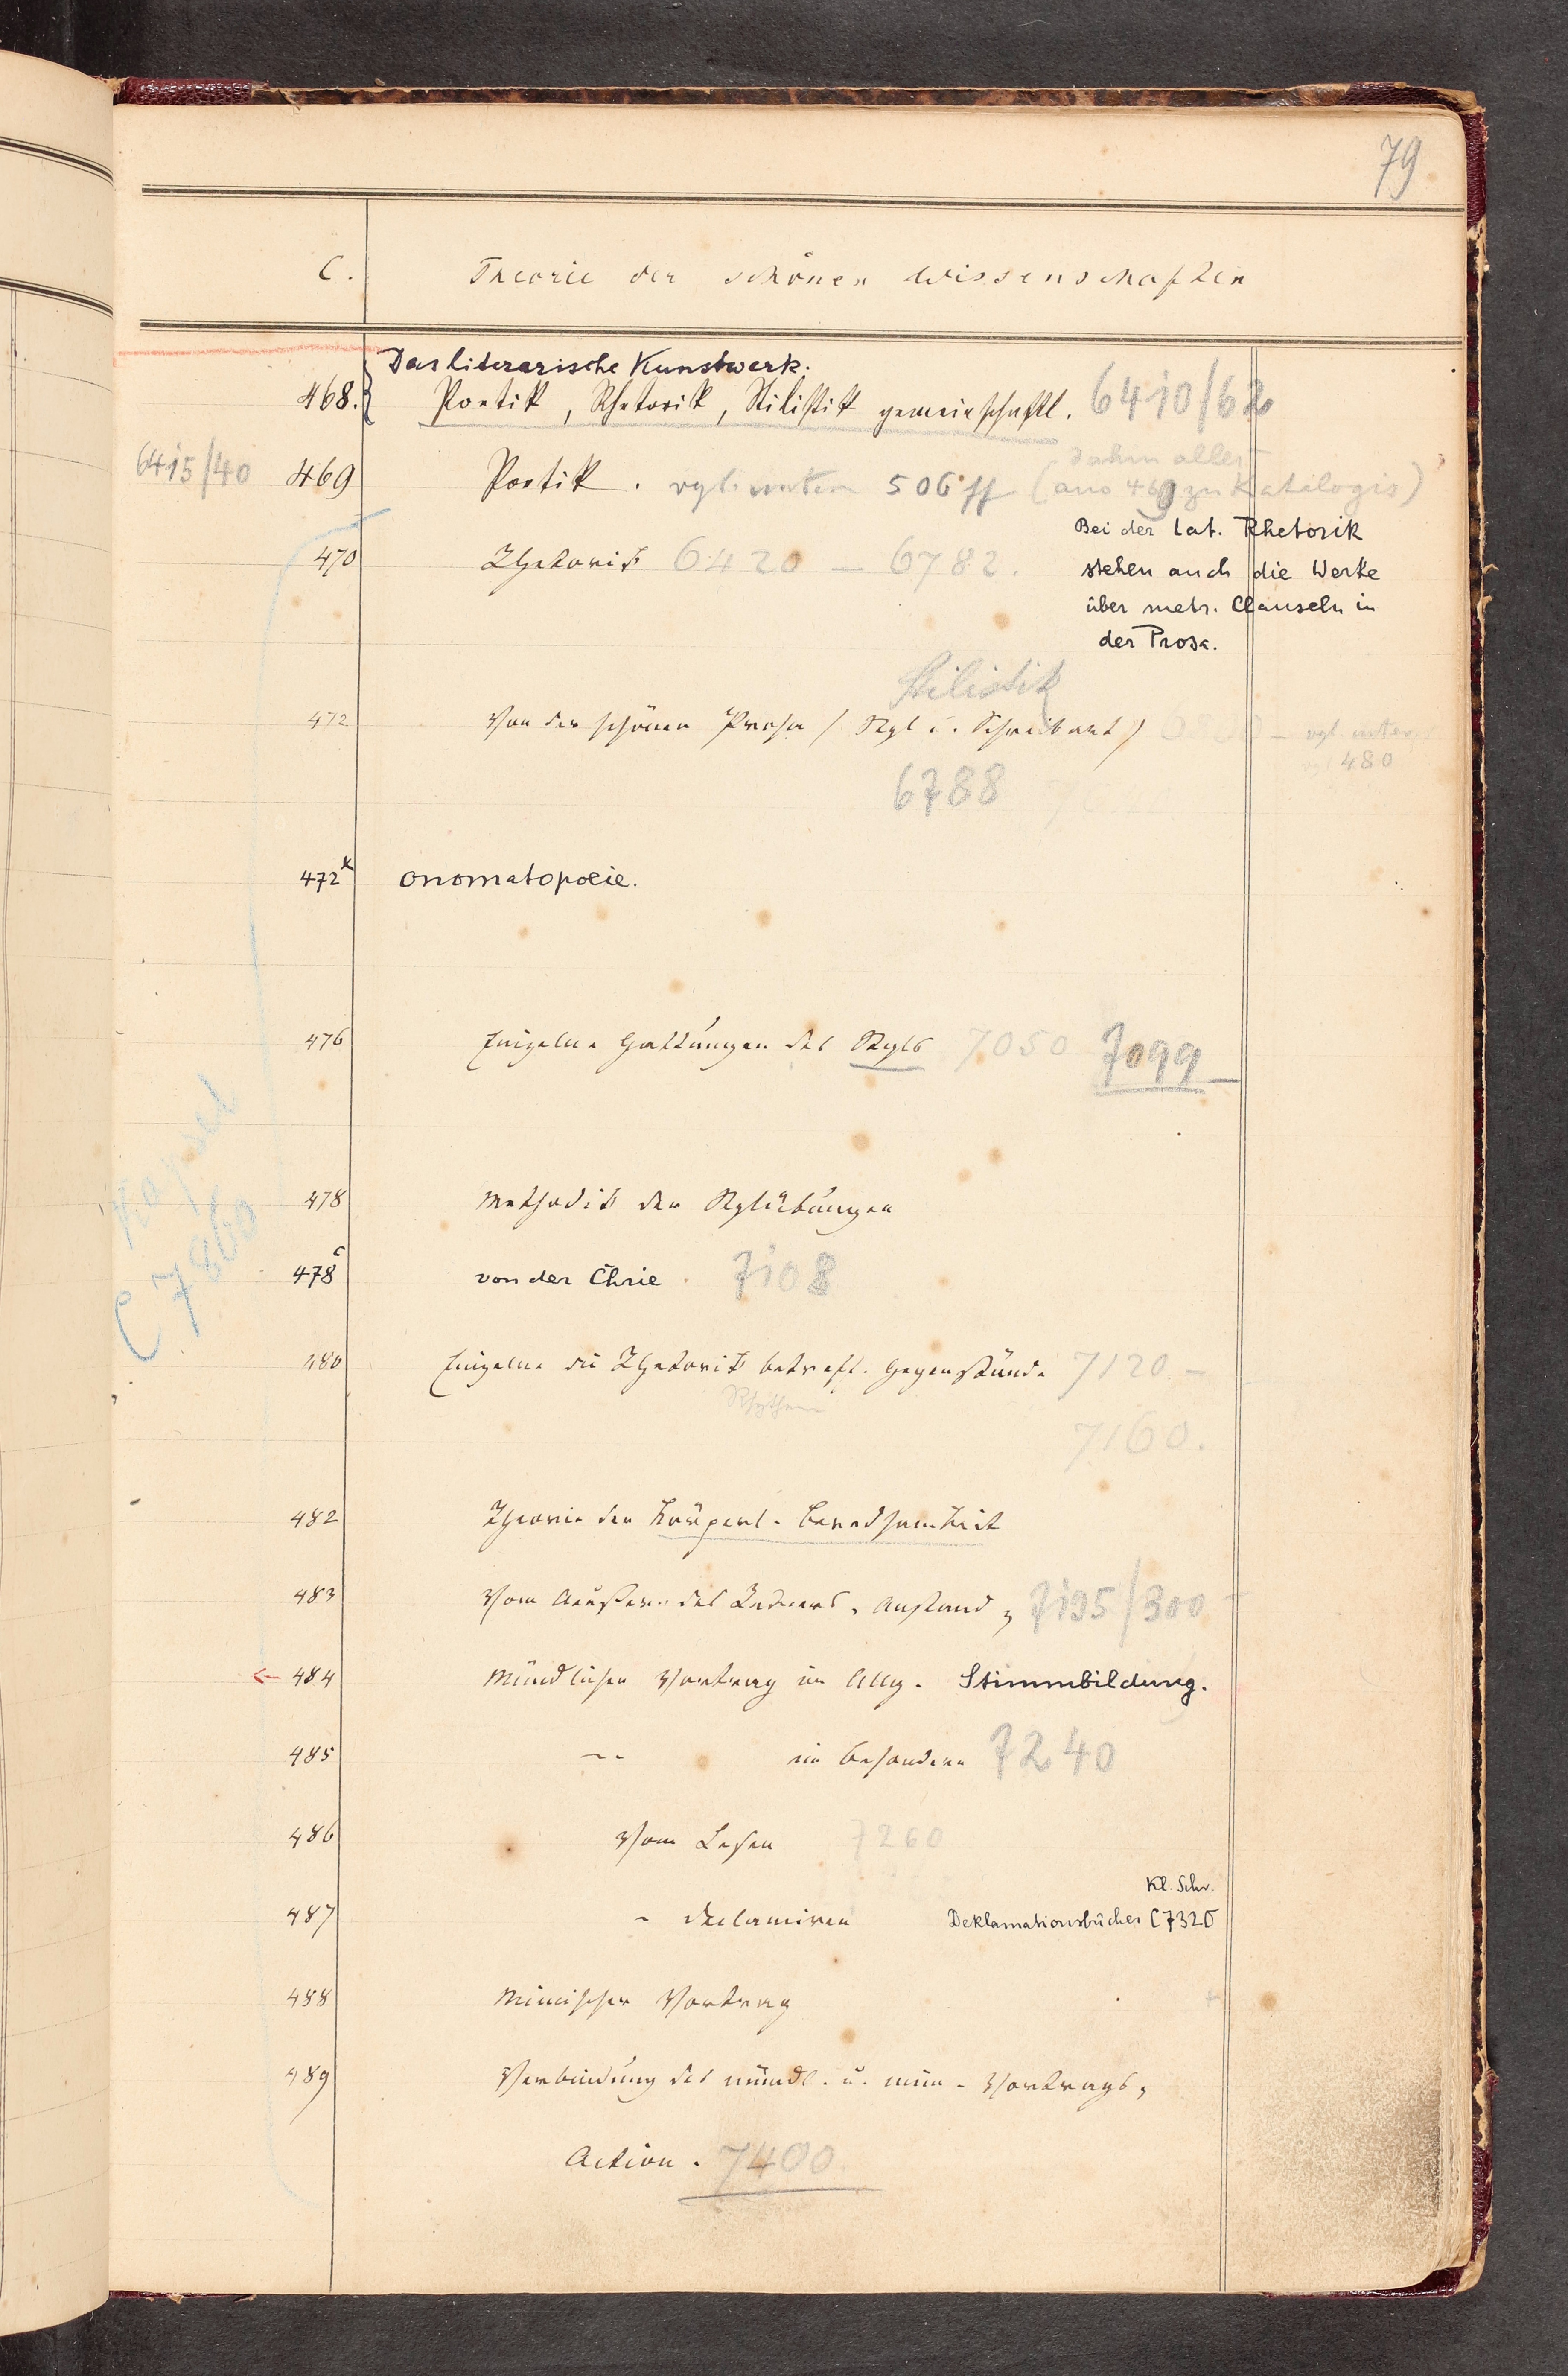 79
C. Theorie der schönen Wissenschaften
Das literarische Kunstwerk.
468. Poetik, Rhetorik, Stilistik gemeinschaftl. 6410/62
6415/40 469 Poetik. vgl. unten 506 ff (dahin alles
aus 469 zu Katalogis)
470 Rhetorik 6420 — 6782.
Bei der lat. Rhetorik
stehen auch die Werke
über metr. Clauseln in
der Prosa.
Stilistik
472 Von der schönen Prosa (Styl u. Schreibart) — vgl. unter
480
6788
472x Onomatopoeie.
476 Einzelne Gattungen des Styls 7050 7099 —
478 Methodik der Stylübungen
Kapsel
C 7360
478c von der Chrie. 7108
480 Einzelne die Rhetorik betreff. Gegenstände 7120. —
Rhythm
7160.
482 Theorie der körperl. Beredsamkeit
483 Vom Aeußern des Redners, Anstand, 7195/300
484 Mündlicher Vortrag im Allg. Stimmbildung.
485 -- im Besondern 7240
486 Vom Lesen 7260
Kl. Schr.
487 - Declamiren Deklamationsbücher C 7320
488 Mimischer Vortrag
489 Verbindung des mündl. u. mim. Vortrags,
Action. 7400